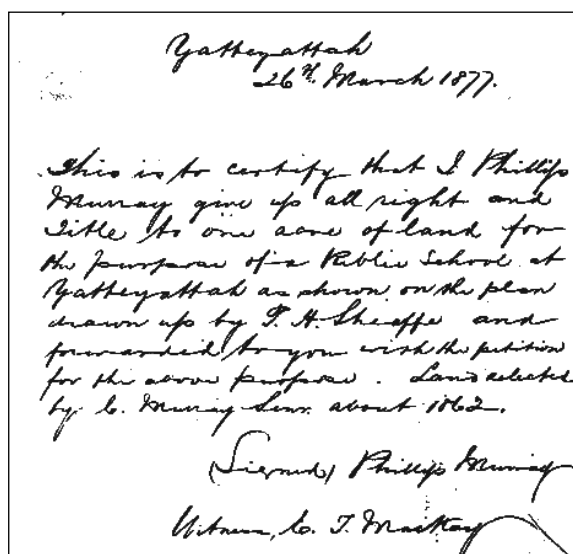 Yatteyattah
26th. March 1877.
This is to certify that I Phillip
Murray give up all right and
Title to one acre of land for
the purpose of a Public School at
Yatteyattah as shown on the plan
drawn up by P. H. Sheaffe and
forwarded to you with the petition
for the above purpose. Land selected
by C. Murray Senr. about 1862.
(Signed) Phillip Murray
Witness, C. T. Mackay